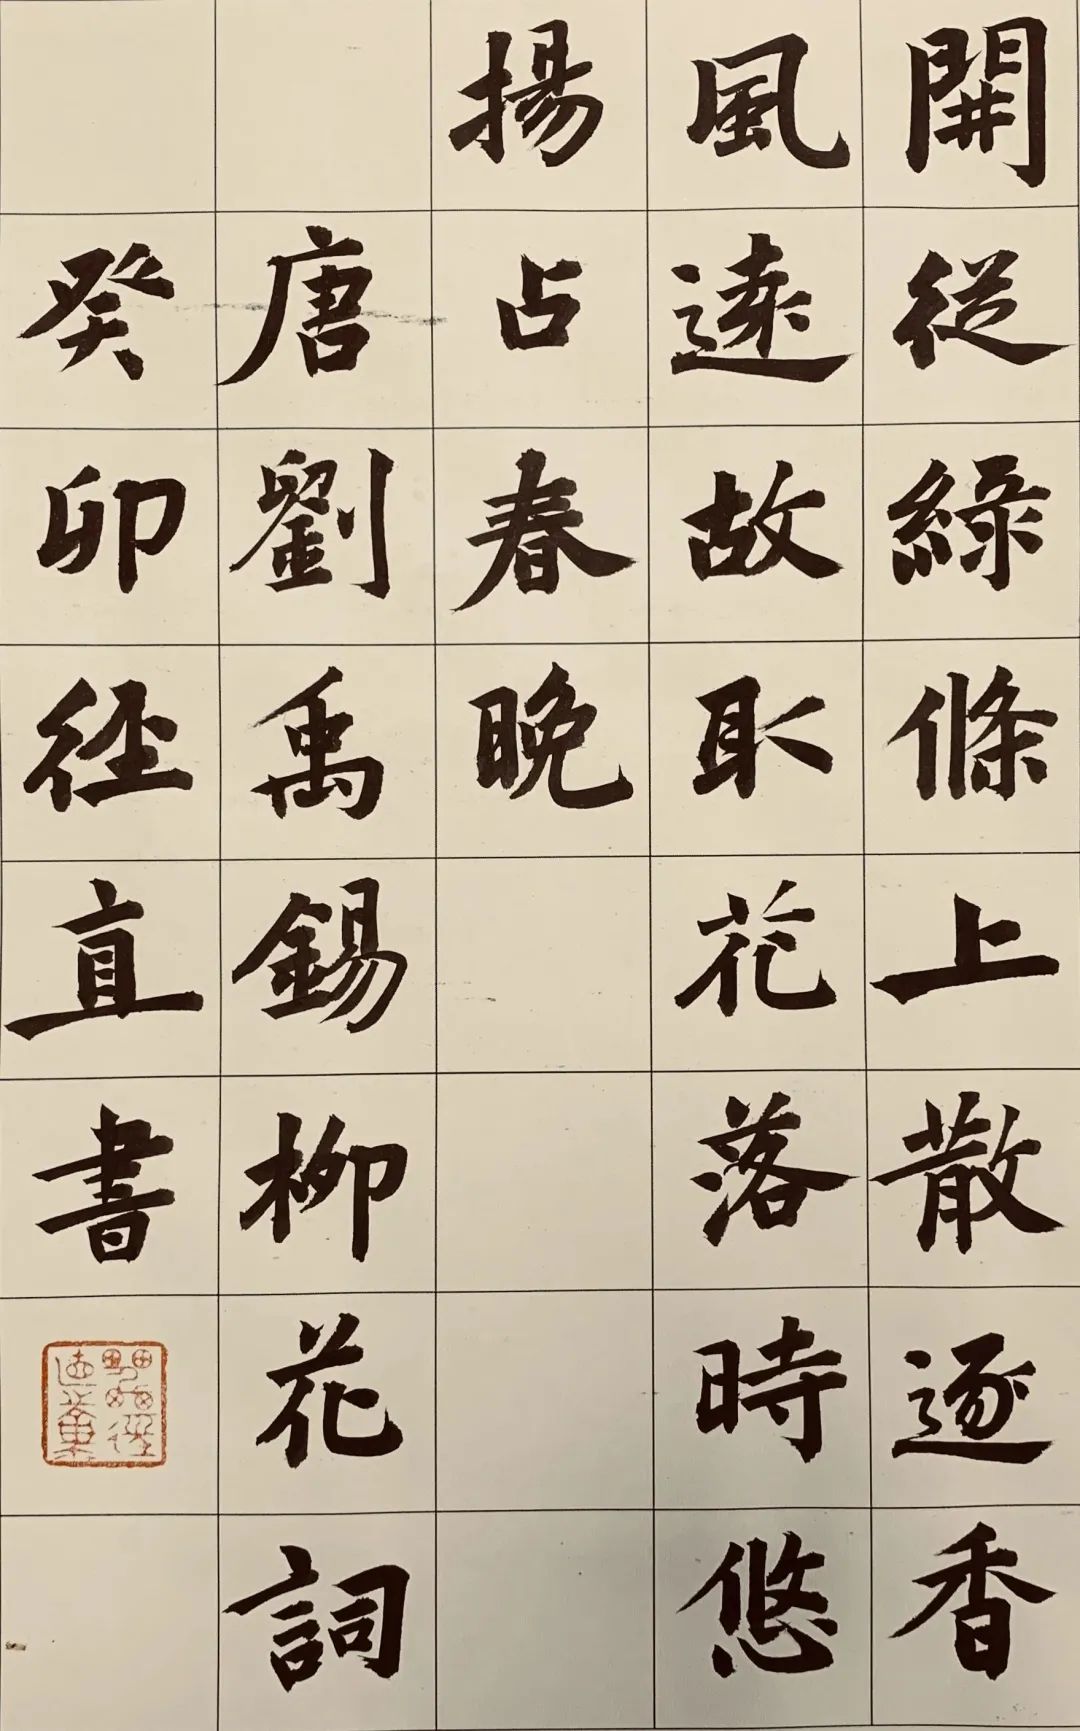 開從綠條上散逐香
風遠故取花落時悠
揚占春晚
唐劉禹錫柳花詞
癸卯徑直書